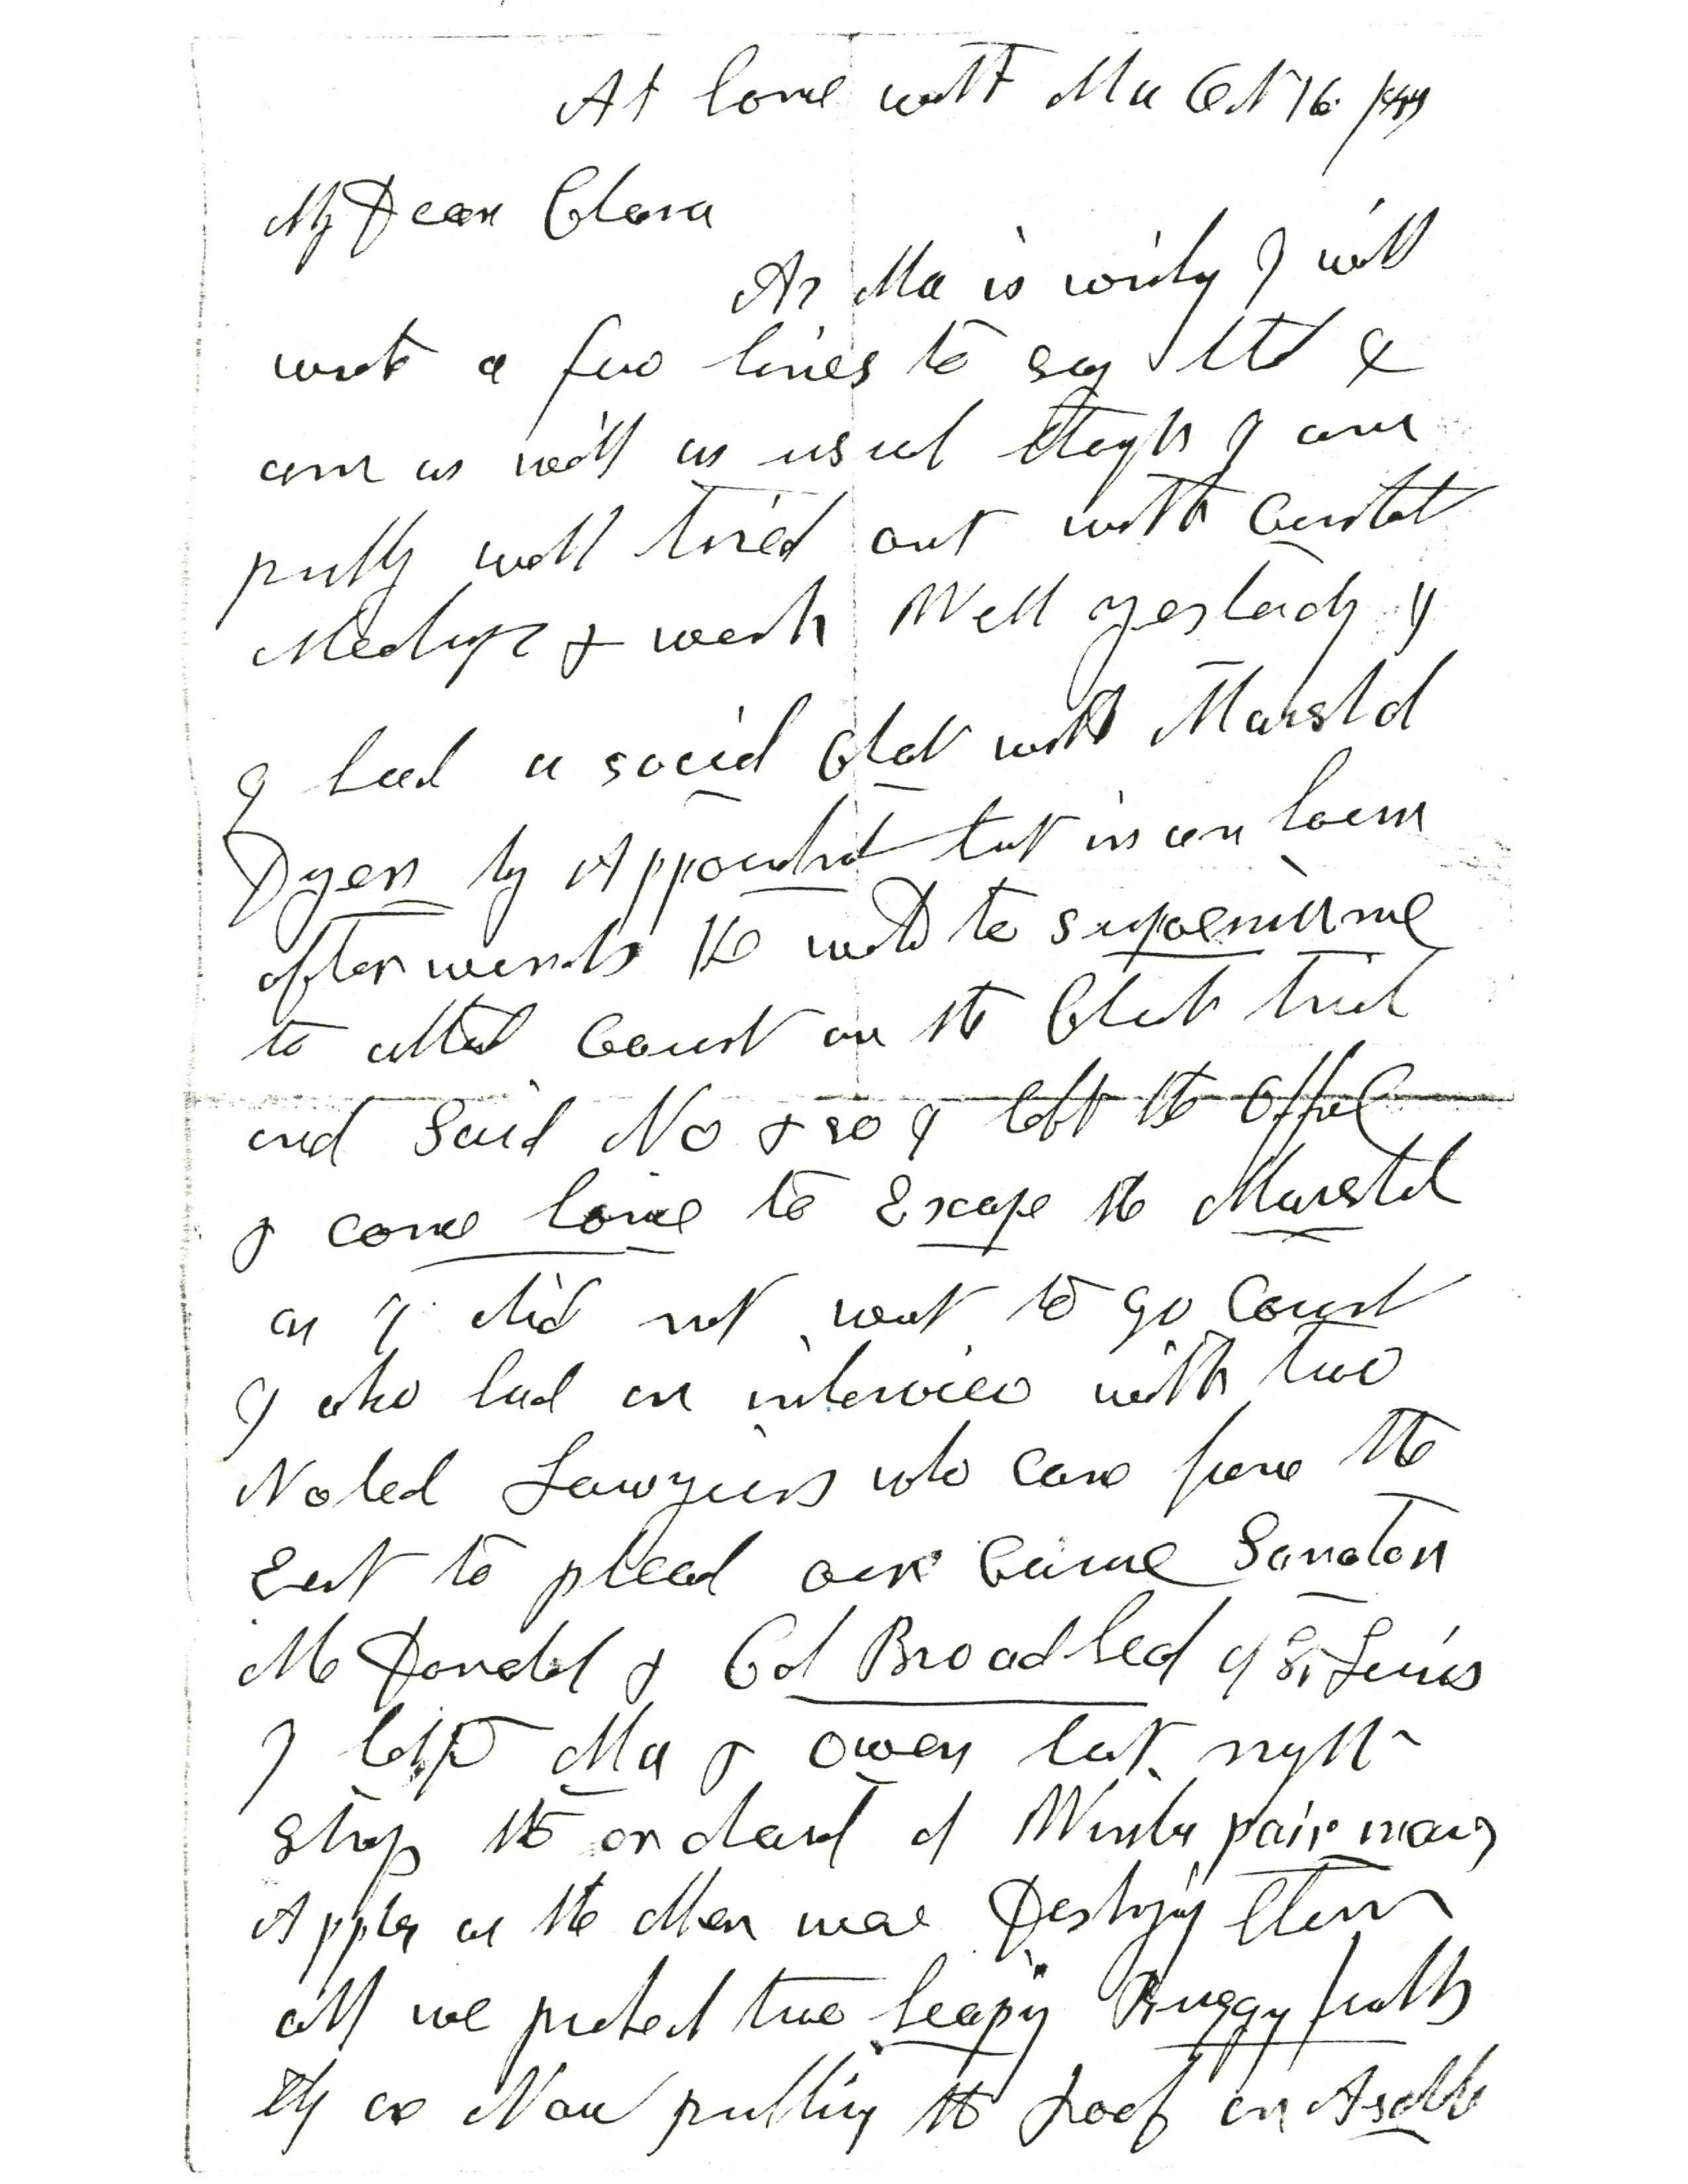 At home with Ma Oct 16 1888
My Dear Clara
As Ma is writing I will
write a few lines to say that I
am as well as usual though I am
pretty well tired out with Constant
Meetings & work Well yesterday
I had a social Chat with Marshal
Dyer by Appointmt but in an hour
afterwards He wanted to supoenia me
to attend Court on the Church trial
and Said No & so I left the Office
& come home to Escape the Marshal
as I did not want to go Court
I also had an interview with two
Noted Lawyers who came from the
East to plead our Cause Senator
McDonald & Col Broadhead of St Louis
I helpd Ma & Owen last night
strip the orchard of Winter pairmain
Apples as the Men were Destroying them
all we picked two heaping Buggy fulls
They are Now putting the Roof on Asahls